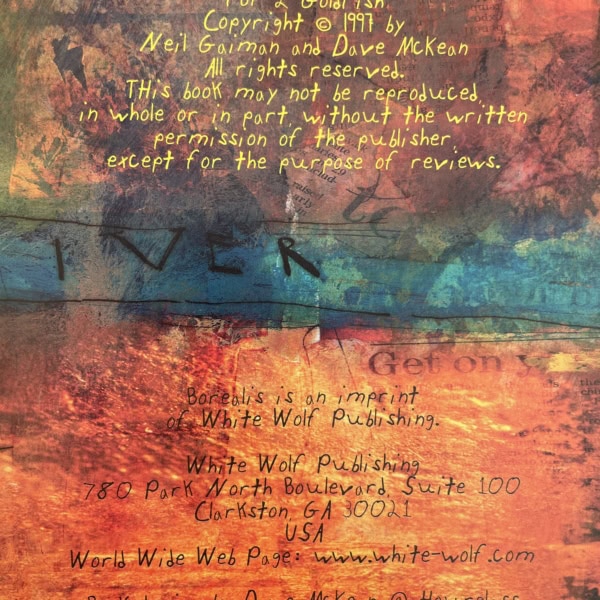 for 2 Goldfish.
Copyright © 1997 by
Neil Gaiman and Dave McKean
All rights reserved.
THis book may not be reproduced,
in whole or in part, without the written
permission of the publisher,
except for the purpose of reviews.
IVER
Get on
Borealis is an imprint
of White Wolf Publishing.
White Wolf Publishing
780 Park North Boulevard, Suite 100
Clarkston, GA 30021
USA
World Wide Web Page: www.white-wolf.com
Dave McKean @ Hourglass